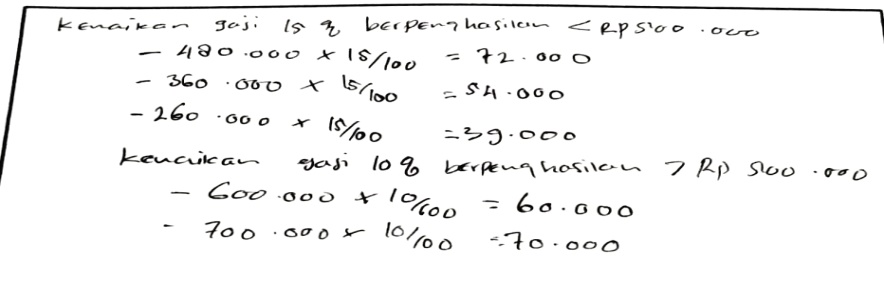 Kenaikan gaji 15 % berpenghasilan < Rp 500.000
- 480.000 x 15/100 = 72.000
- 360.000 x 15/100 = 54.000
- 260.000 x 15/100 = 39.000
Kenaikan gaji 10 % berpenghasilan > Rp 500.000
- 600.000 x 10/100 = 60.000
- 700.000 x 10/100 = 70.000